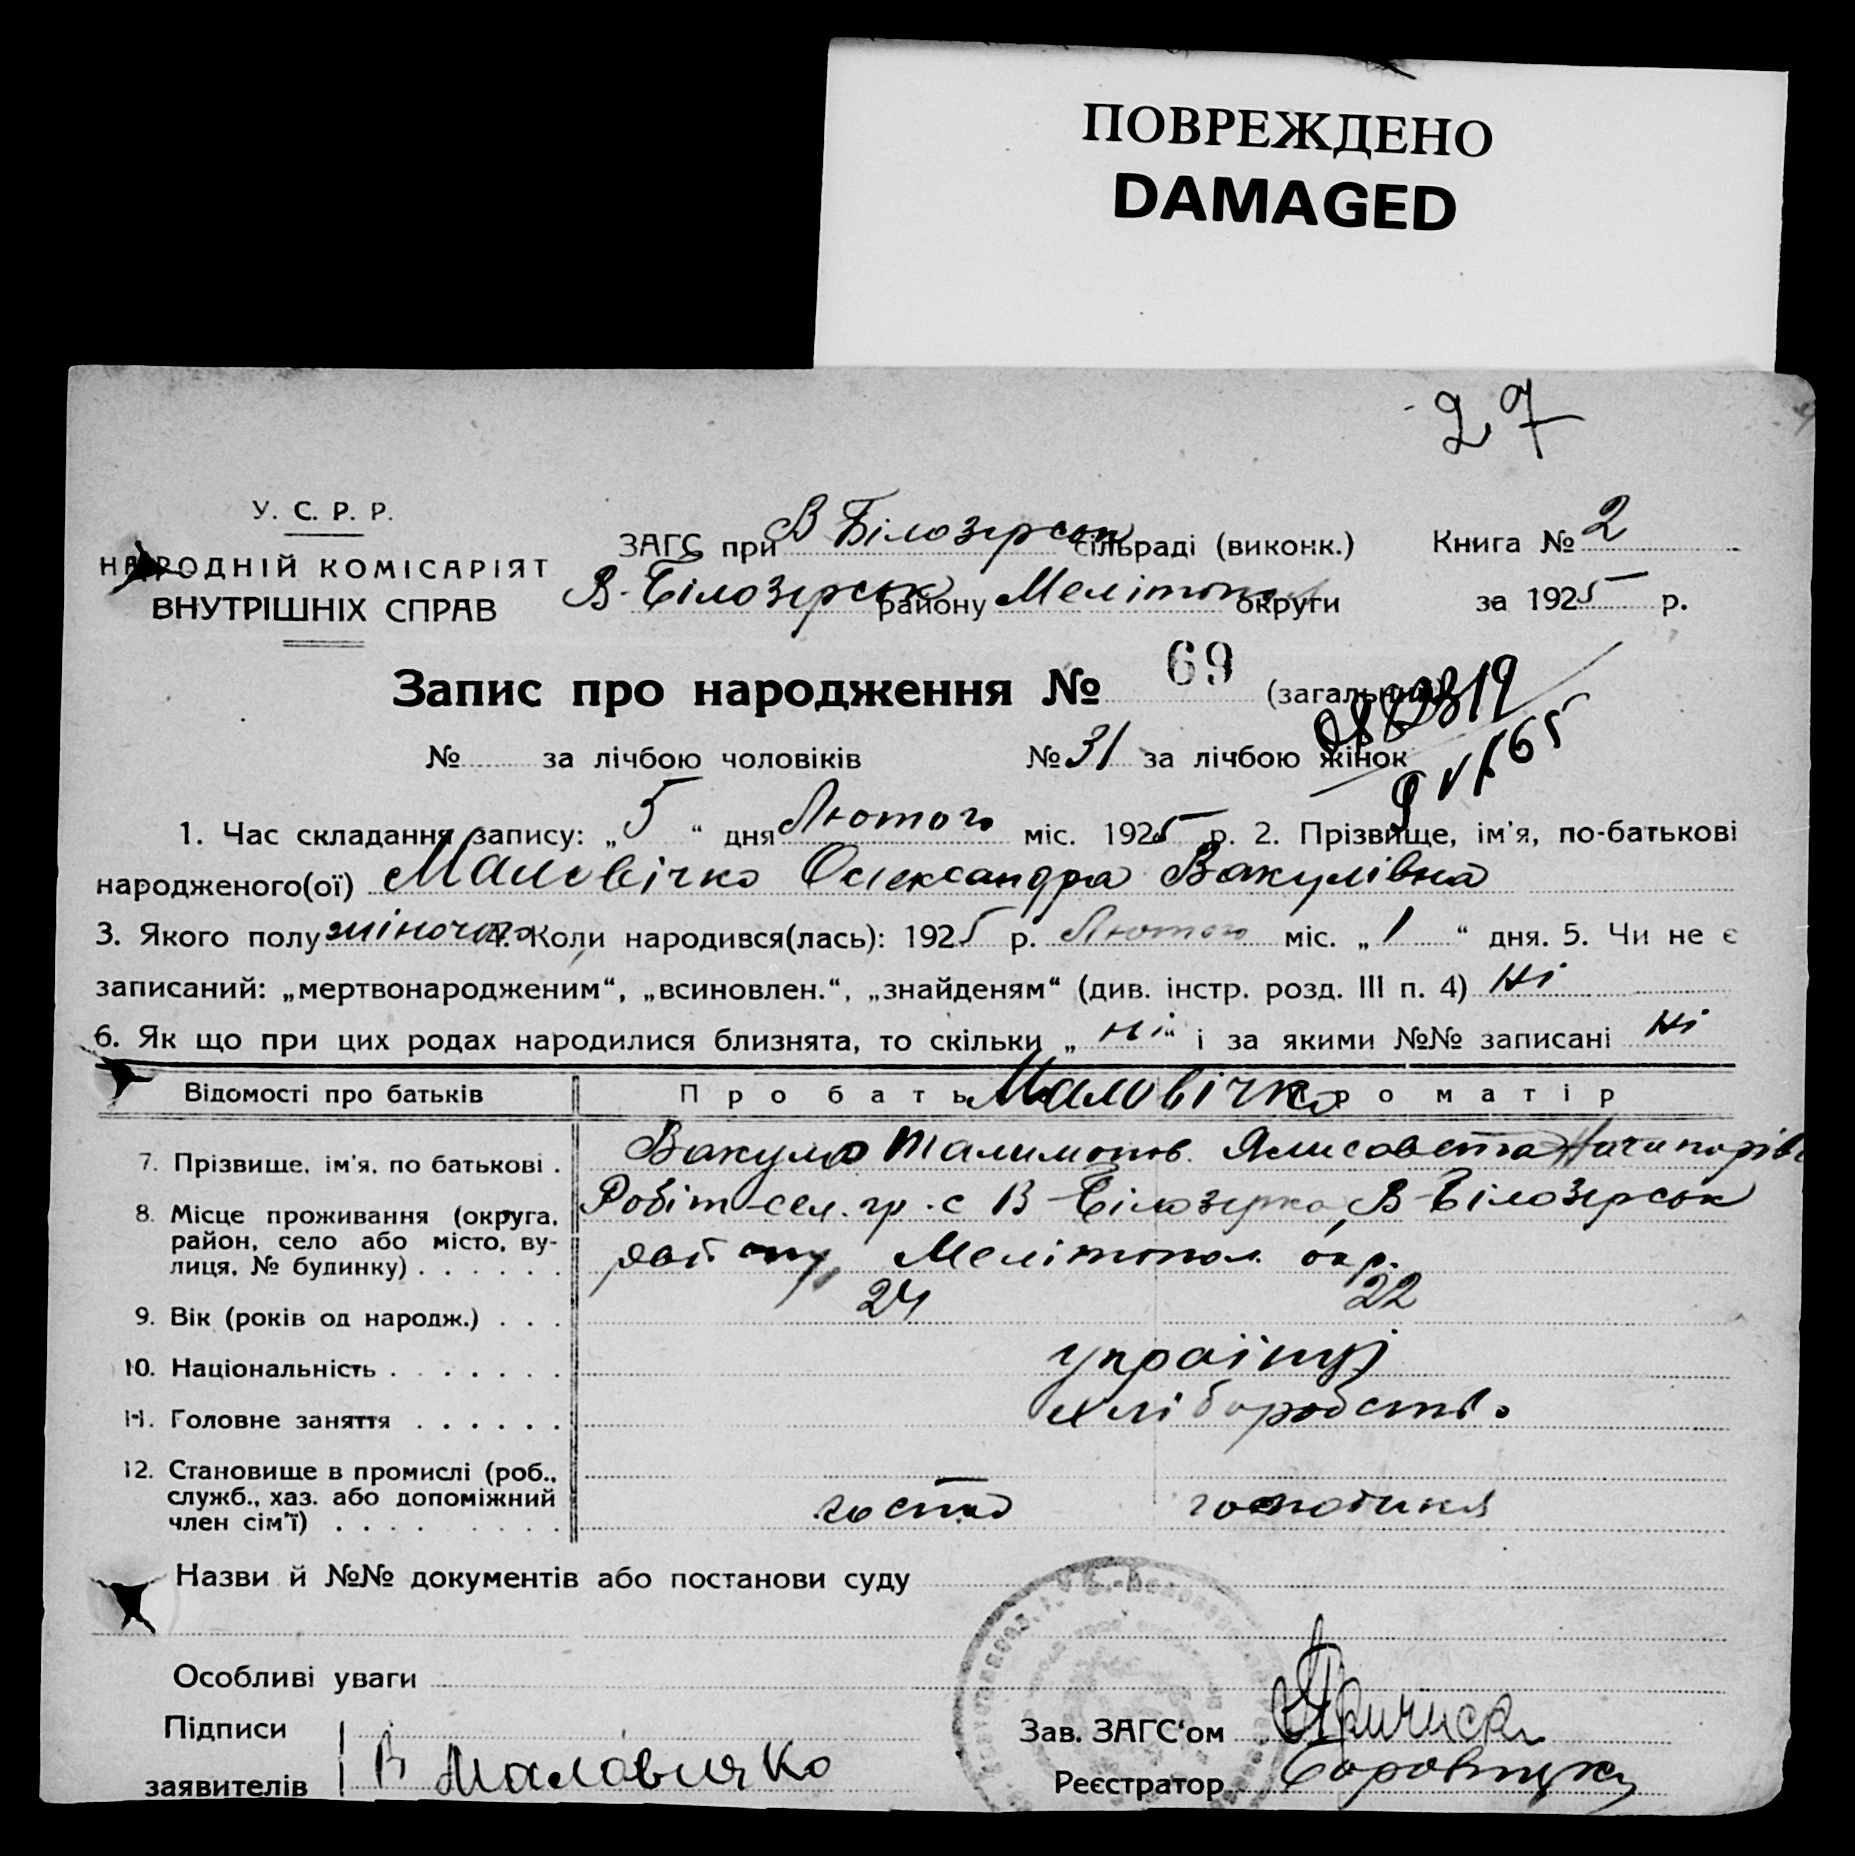 ПОВРЕЖДЕНО
DAMAGED
27
У. С. Р. Р.
НАРОДНІЙ КОМІСАРІЯТ
ВНУТРІШНІХ СПРАВ
ЗАГС при В Білозерськ сільраді (виконк.) Книга № 2
В-Білозерськ району Мелітопол округи за 1925 р.
Запис про народження № 69 (загальний)
№ за лічбою чоловіків № 31 за лічбою жінок
1. Час складання запису: „5“ дня Лютого міс. 1925 р. 2. Прізвище, ім'я, по-батькові
народженого(ої) Маловічко Олександра Вакулівна
3. Якого полу жіночого 4. Коли народився(лась): 1925 р. Лютого міс. „1“ дня. 5. Чи не є
записаний: „мертвонародженим“, „всиновлен.“, „знайденям“ (див. інстр. розд. III п. 4) Ні
6. Як що при цих родах народилися близнята, то скільки „ні“ і за якими №№ записані ні
Відомості про батьків Про батька Про матір
Маловічко
7. Прізвище, ім'я, по батькові . Вакула Талимонов. Ялисовета Ничипорівн
8. Місце проживання (округа, Робіт-сел. гр. с В-Білозерка, В-Білозерськ
район, село або місто, ву-
лиця, № будинку) . . . . . . району Мелітопол. окр.
9. Вік (років од народж.) . . . 24 22
10. Національність . . . . . . . українці
11. Головне заняття . . . . . . хліборобств.
12. Становище в промислі (роб.,
служб., хаз. або допоміжний
член сім'ї) . . . . . . . . .
Назви й №№ документів або постанови суду
Особливі уваги
Підписи
заявителів В Маловичко
Зав. ЗАГС‘ом
Реєстратор